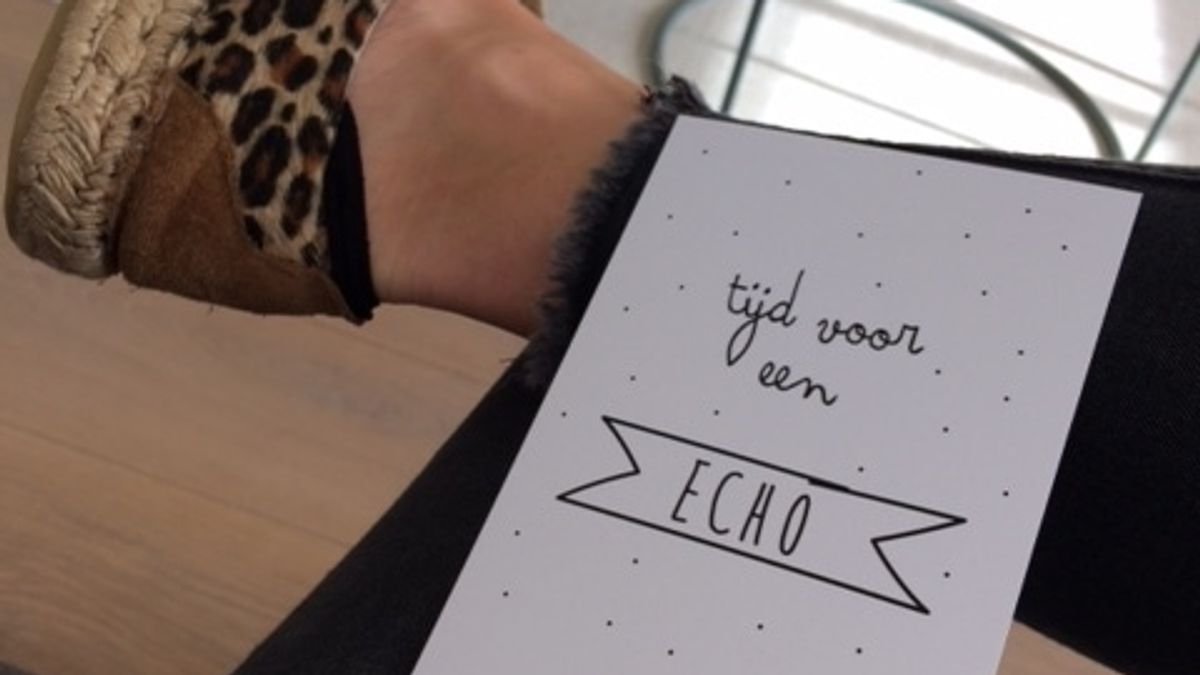 tijd voor
een
ECHO